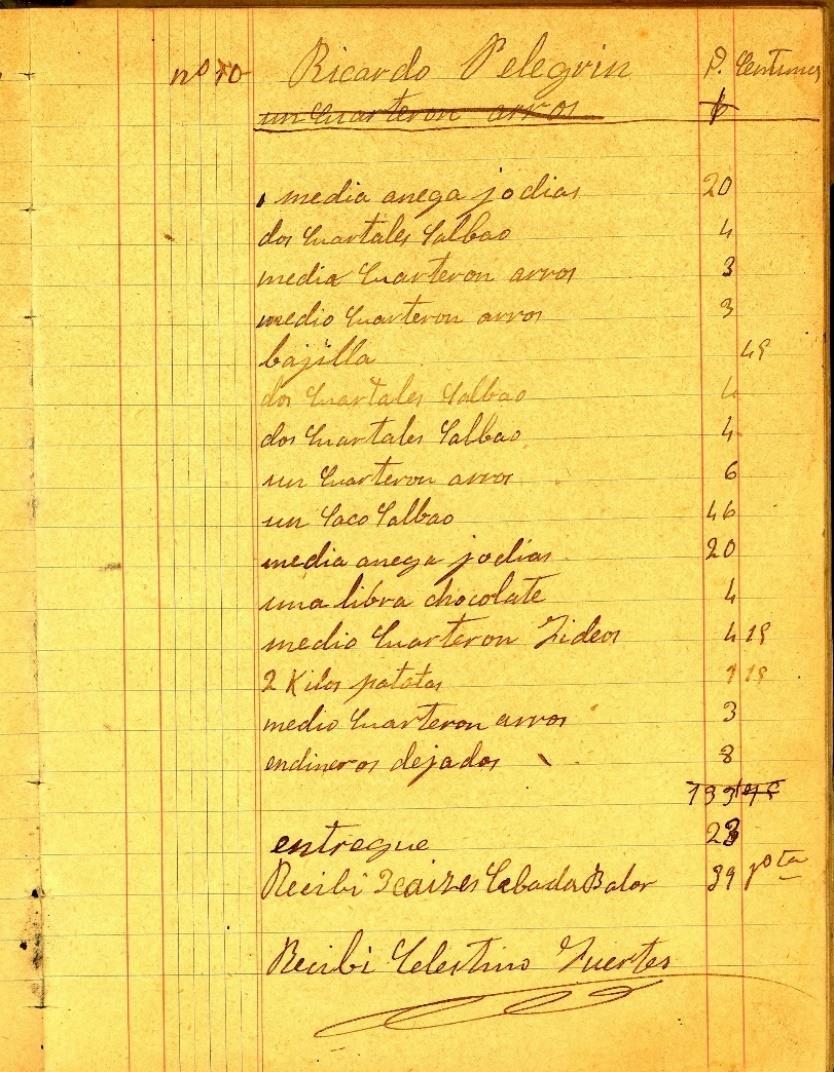 nº 10 Ricardo Pelegrin P. Centimos
un Cuarteron arros 6
media anega jodias 20
dos Cuartales Salbao 4
media Cuarteron arros 3
medio Cuarteron arros 3
bajilla 45
dos Cuartales Salbao 4
dos Cuartales Salbao 4
un Cuarteron arros 6
un Saco Salbao 46
media anega jodias 20
una libra chocolate 4
medio Cuarteron Fideos 4 15
2 Kilos patatas 1 15
medio Cuarteron arros 3
endineros dejados 8
133
entregue
Recibi Caizes Cebada Balor 39 pta
Recibi Celestino Fuertes